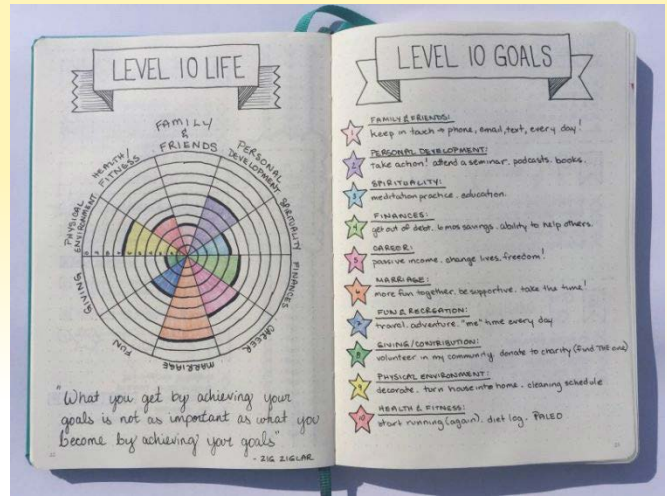 LEVEL 10 LIFE
FAMILY
&
FRIENDS
PERSONAL
DEVELOPMENT
SPIRITUALITY
FINANCES
CAREER
MARRIAGE
FUN
GIVING
PHYSICAL
ENVIRONMENT
HEALTH/
FITNESS
"What you get by achieving your
goals is not as important as what you
become by achieving your goals"
- ZIG ZIGLAR
LEVEL 10 GOALS
1 FAMILY & FRIENDS:
keep in touch → phone, email, text, every day!
2 PERSONAL DEVELOPMENT:
Take action! attend a seminar. podcasts. books.
3 SPIRITUALITY:
meditation practice. education.
4 FINANCES:
get out of debt. 6 mos savings. ability to help others.
5 CAREER:
passive income. change lives. freedom!
6 MARRIAGE:
more fun together. be supportive. take the time!
7 FUN & RECREATION:
travel. adventure. "me" time every day
8 GIVING/CONTRIBUTION:
volunteer in my community. donate to charity (find THE one)
9 PHYSICAL ENVIRONMENT:
decorate. turn house into home. cleaning schedule
10 HEALTH & FITNESS:
start running (again). diet log. PALEO